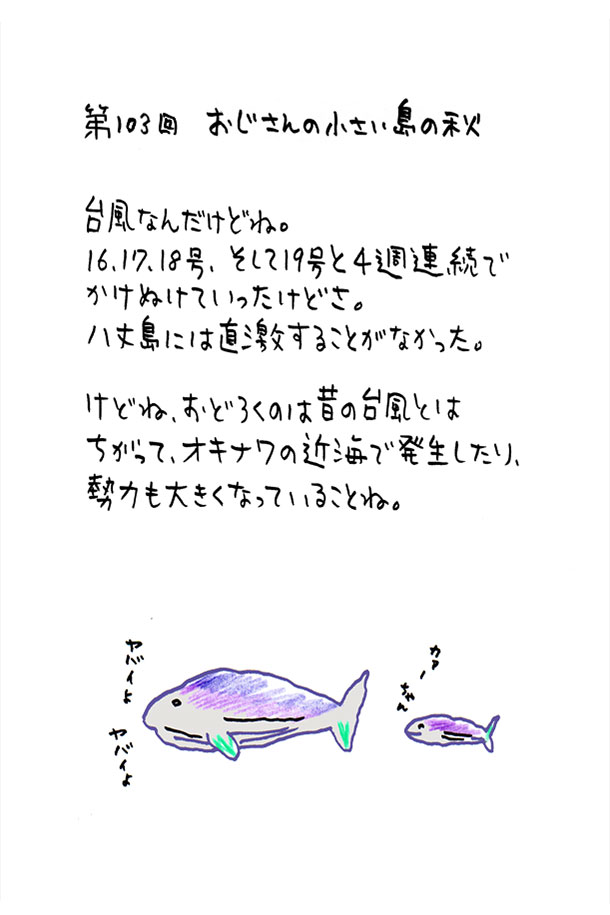 第103回 おじさんの小さい島の秋
台風なんだけどね。
16、17、18号、そして19号と4週連続で
かけぬけていったけどさ。
八丈島には直激することがなかった。
けどね、おどろくのは昔の台風とは
ちがって、オキナワの近海で発生したり、
勢力も大きくなっていることね。
ヤバイよ
ヤバイよ
カァー
ちゃん